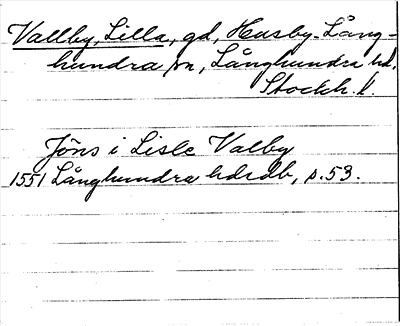 Vallby, Lilla, gd, Husby-Lång-
hundra sn, Långhundra hd.
Stockh. l.
Jöns i Lisle Valby
1551 Långhundra hdrdb, s. 53.